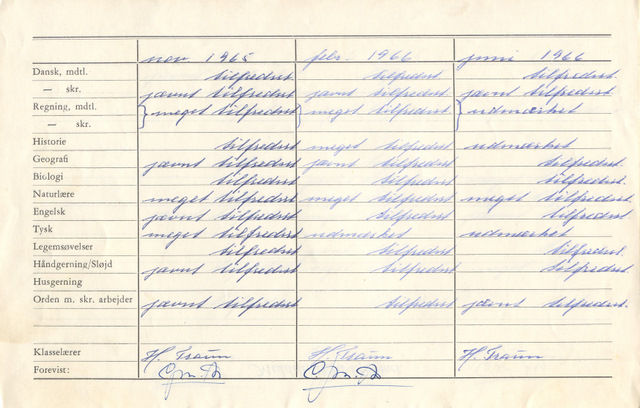 nov. 1965 febr. 1966 juni 1966
Dansk, mdtl. tilfredsst tilfredsst tilfredsst.
— skr. jævnt tilfredsst jævnt tilfredsst jævnt tilfredsst
Regning, mdtl. } meget tilfredsst } meget tilfredsst } udmærket
— skr.
Historie tilfredsst meget tilfredsst udmærket
Geografi jævnt tilfredsst jævnt tilfredsst tilfredsst.
Biologi tilfredsst tilfredsst tilfredsst.
Naturlære meget tilfredsst meget tilfredsst meget tilfredsst.
Engelsk jævnt tilfredsst tilfredsst tilfredsst
Tysk meget tilfredsst udmærket udmærket
Legemsøvelser tilfredsst tilfredsst tilfredsst.
Håndgerning/Sløjd jævnt tilfredsst tilfredsst tilfredsst.
Husgerning
Orden m. skr. arbejder jævnt tilfredsst tilfredsst jævnt tilfredsst.
Klasselærer H. Traun H. Traun H. Traun
Forevist: